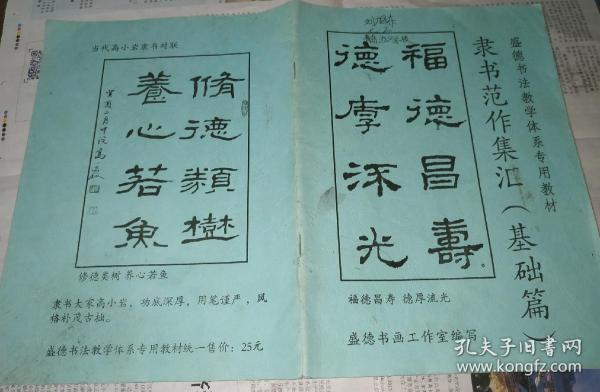 盛德书法教学体系专用教材
隶书范作集汇（基础篇）
福德昌寿
德厚流光
福德昌寿 德厚流光
盛德书画工作室编写
当代高小岩隶书对联
脩德類樹
養心若魚
修德类树 养心若鱼
隶书大家高小岩，功底深厚，用笔谨严，风
格朴茂古拙。
盛德书法教学体系专用教材统一售价：25元
孔夫子旧书网